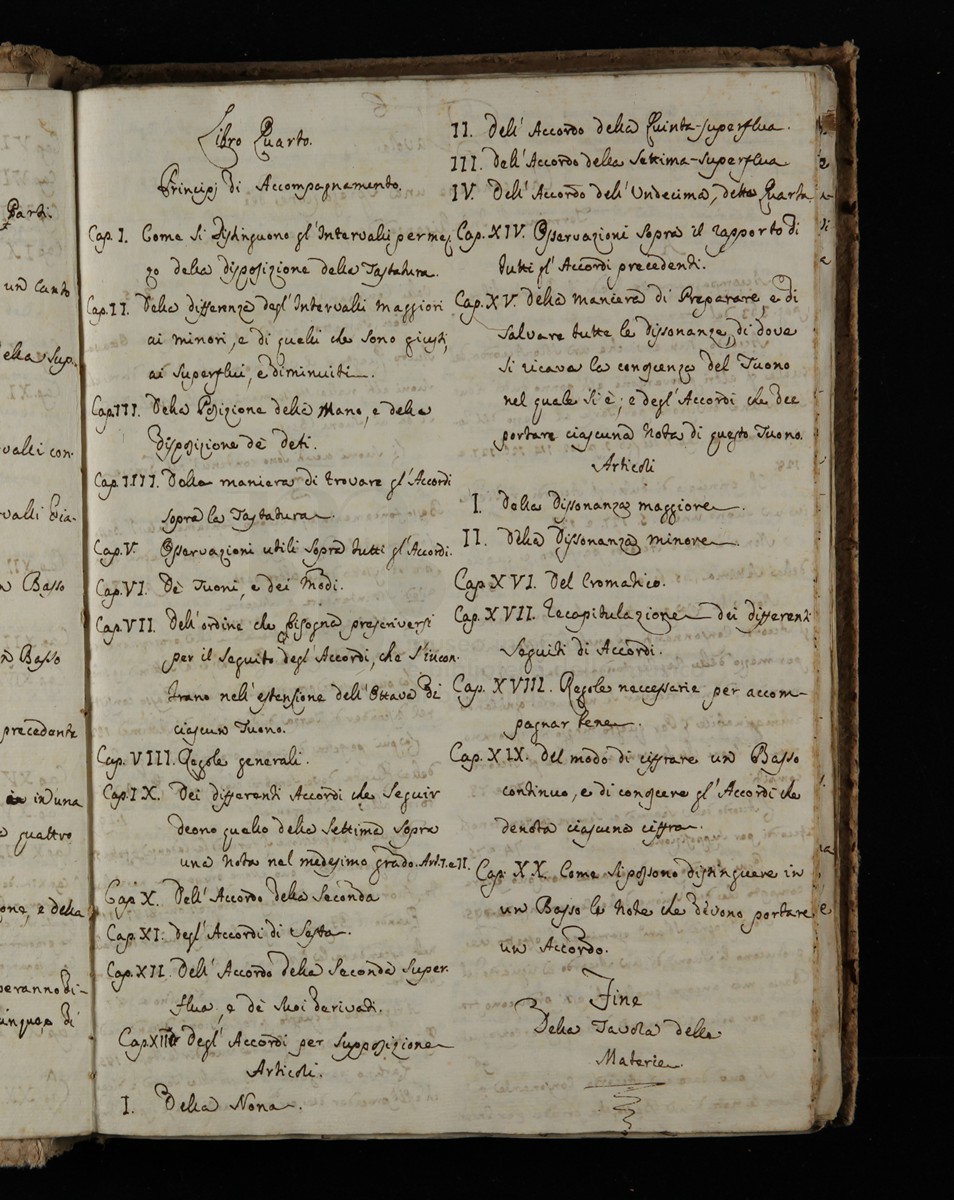 Parti.
un canto
ella sup.
valli con-
valli
Basso
Basso
precedente
in una
quattro
one, e della
eranno di-
cinque, di
Libro Quarto.
Principj di Accompagnamento.
Cap. I. Come si distinguono gl'Intervalli per mez
zo della disposizione della Tastatura.
Cap. II. Della differenza degl'Intervalli maggiori
ai minori, e di quelli che sono giusti,
ai superflui, e diminuiti.
Cap. III. Della Posizione della Mano, e della
disposizione de deti.
Cap. IIII. Della maniera di trovare gl'Accordi
sopra la Tastatura.
Cap. V. Osservazioni utili sopra tutti gl'Accordi.
Cap. VI. De Tuoni, e dei Modi.
Cap. VII. Dell'ordine che bisogna prescriversi
per il seguito degl'Accordi, che s'incon-
trano nell'estensione dell'Ottava di
ciascun Tuono.
Cap. VIII. Regole generali.
Cap. IX. Dei differenti Accordi che seguir
deono quello della Settima sopra
una nota nel medesimo grado. Art. I. e II.
Cap. X. Dell'Accordo della Seconda
Cap. XI. degl'Accordi di Sesta.
Cap. XII. Dell'Accordo della Seconda Super-
flua, e de suoi derivati.
Cap. XIII. Degl'Accordi per supposizione
Articoli.
I. Della Nona.
II. Dell'Accordo della Quinta-superflua.
III. Dell'Accordo della Settima-superflua
IV. Dell'Accordo dell'Undecima, detta Quarta
Cap. XIV. Osservazioni sopra il rapporto di
tutti gl'Accordi precedenti.
Cap. XV. Della maniera di Preparare, e di
salvare tutte le dissonanze, di dove
si ricava la conoscenza del Tuono
nel quale si è; e degl'Accordi che dee
portare ciascuna nota di questo Tuono.
Articoli
I. Della dissonanza maggiore.
II. Della dissonanza minore.
Cap. XVI. Del Cromatico.
Cap. XVII. Recapitulazione dei differenti
seguiti di Accordi.
Cap. XVIII. Regole neccessarie per accom-
pagnar bene.
Cap. XIX. Del modo di ciffrare un Basso
continuo, e di conoscere gl'Accordi che
denota ciascuna ciffra.
Cap. XX. Come si possono distinguere in
un Basso le Note che devono portare
un Accordo.
Fine
Della Tavola delle
Materie.